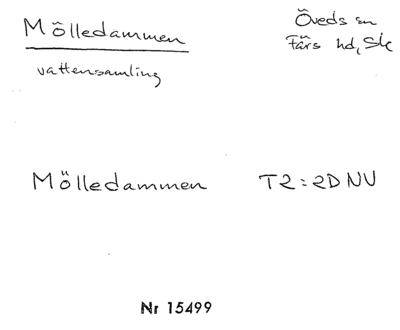 Mölledammen
vattensamling
Öveds sn
Färs hd, Sk
Mölledammen T2:2D NV
Nr 15499